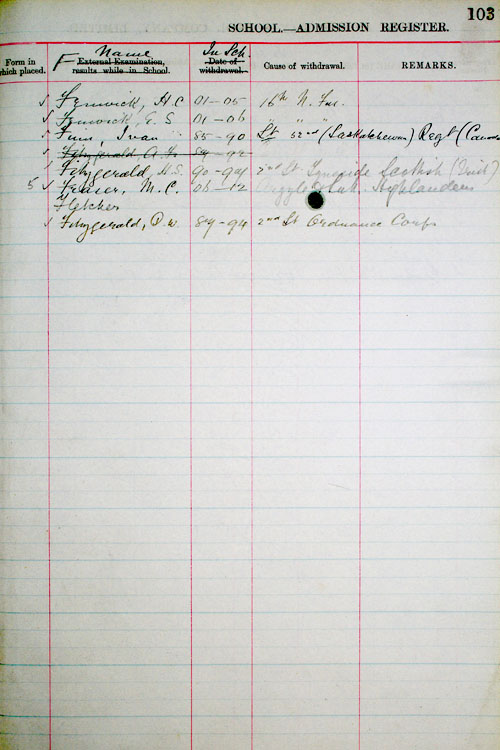 103
SCHOOL.—ADMISSION REGISTER.
Form in which placed.
F Name
External Examination, results while in School.
In Sch
Date of withdrawal.
Cause of withdrawal.
REMARKS.
√ Fenwick, H.C 01-05 16th N. Fus.
√ Fenwick, E S 01-06 " " "
√ Ivan 85-90 Lt 52nd (Saskatchewan) Regt (Canada
√ Fitzgerald A. 89-92
√ Fitzgerald, H.S. 90-94 2nd Lt Tyneside Scottish
5 √ Fraser, M.C. 06-12 Argyle & Suth. Highlanders
Fletcher
√ Fitzgerald, P.W. 89-94 2nd Lt Ordnance Corps